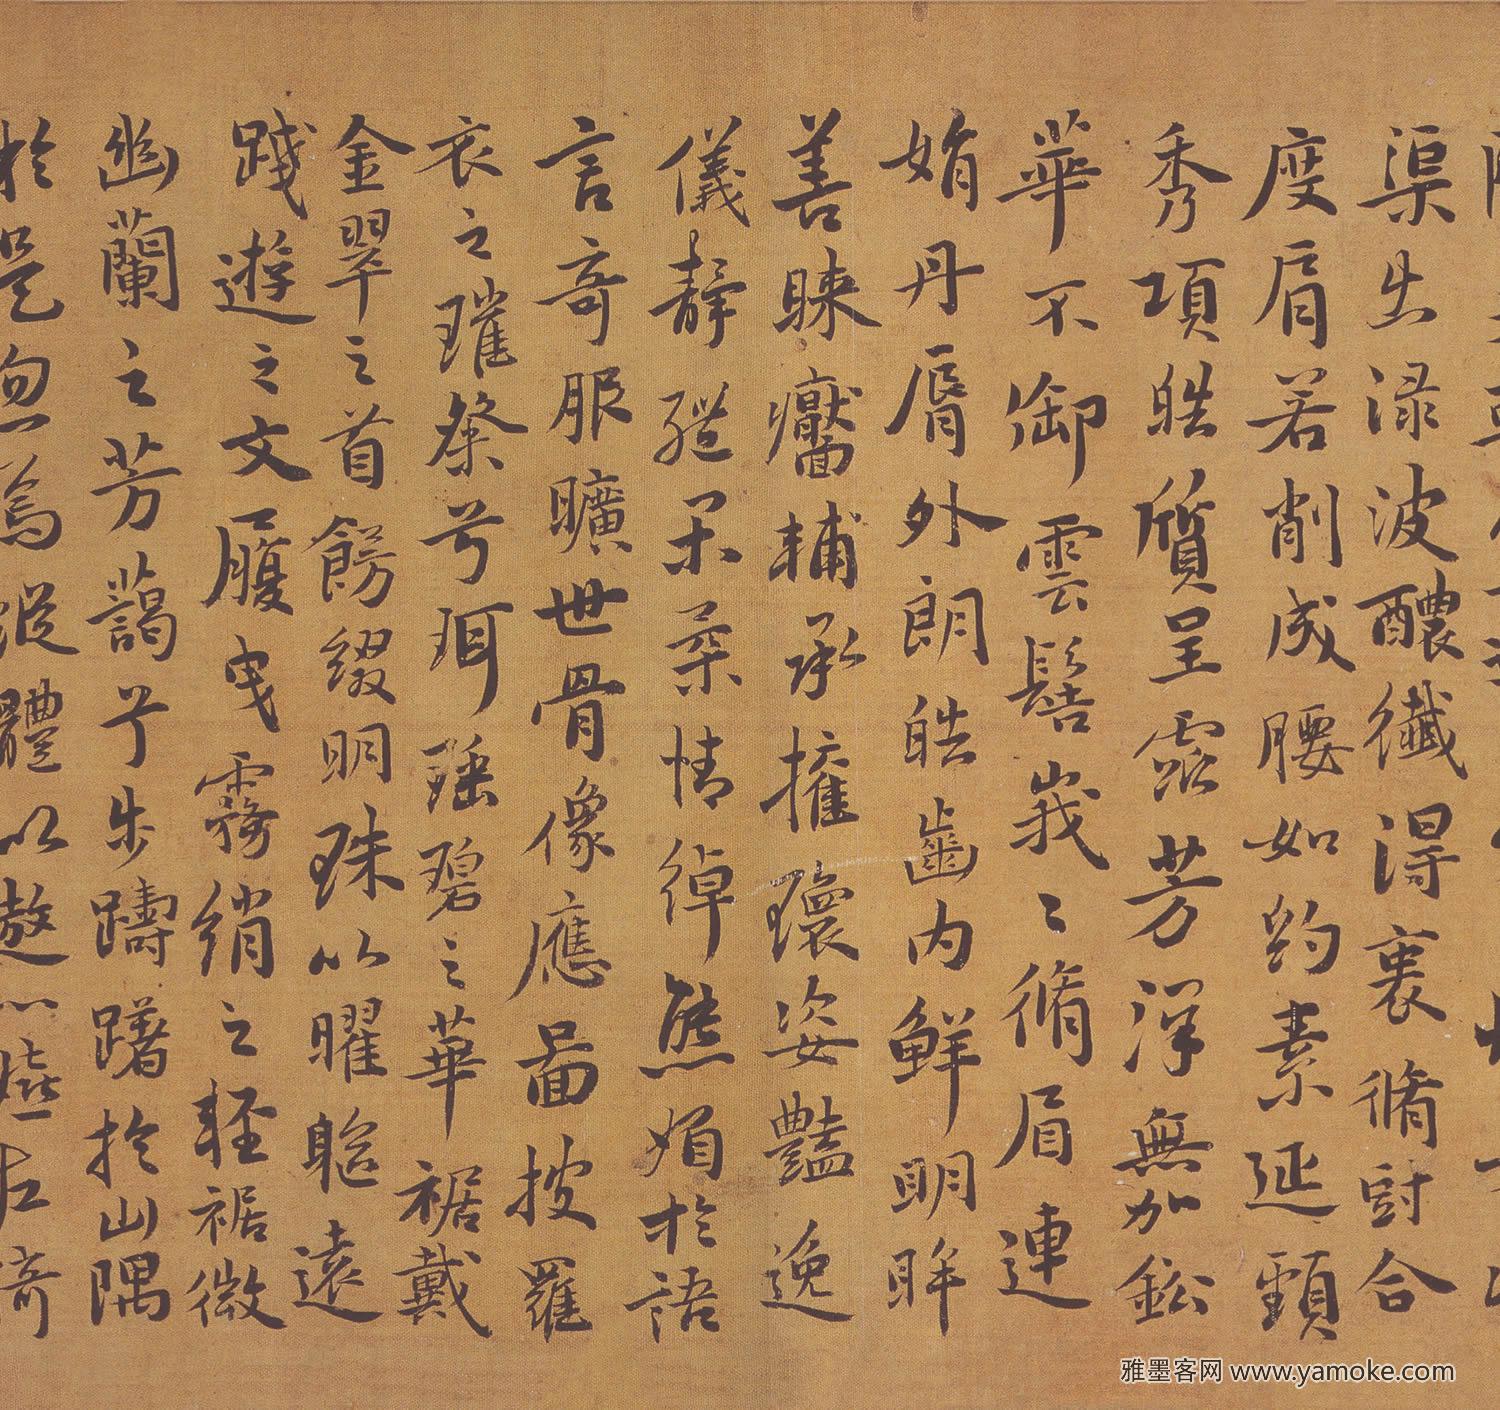 渠出渌波醲纖得衷脩短合
度肩若削成腰如約素延頸
秀項皓質呈露芳澤無加鈆
華不御雲髻峩〻脩眉連
娟丹脣外朗皓齒内鮮明眸
善睞靨輔承權瓌姿豔逸
儀静體閑柔情綽態媚於語
言奇服曠世骨像應啚披羅
衣之璀粲兮珥瑶碧之華裾戴
金翠之首飾綴明珠以曜軀遠
踐遊之文履曳霧綃之輕裾微
幽蘭之芳藹兮步躊躇於山隅
於是忽焉縱體以遨以嬉左倚
雅墨客网 www.yamoke.com